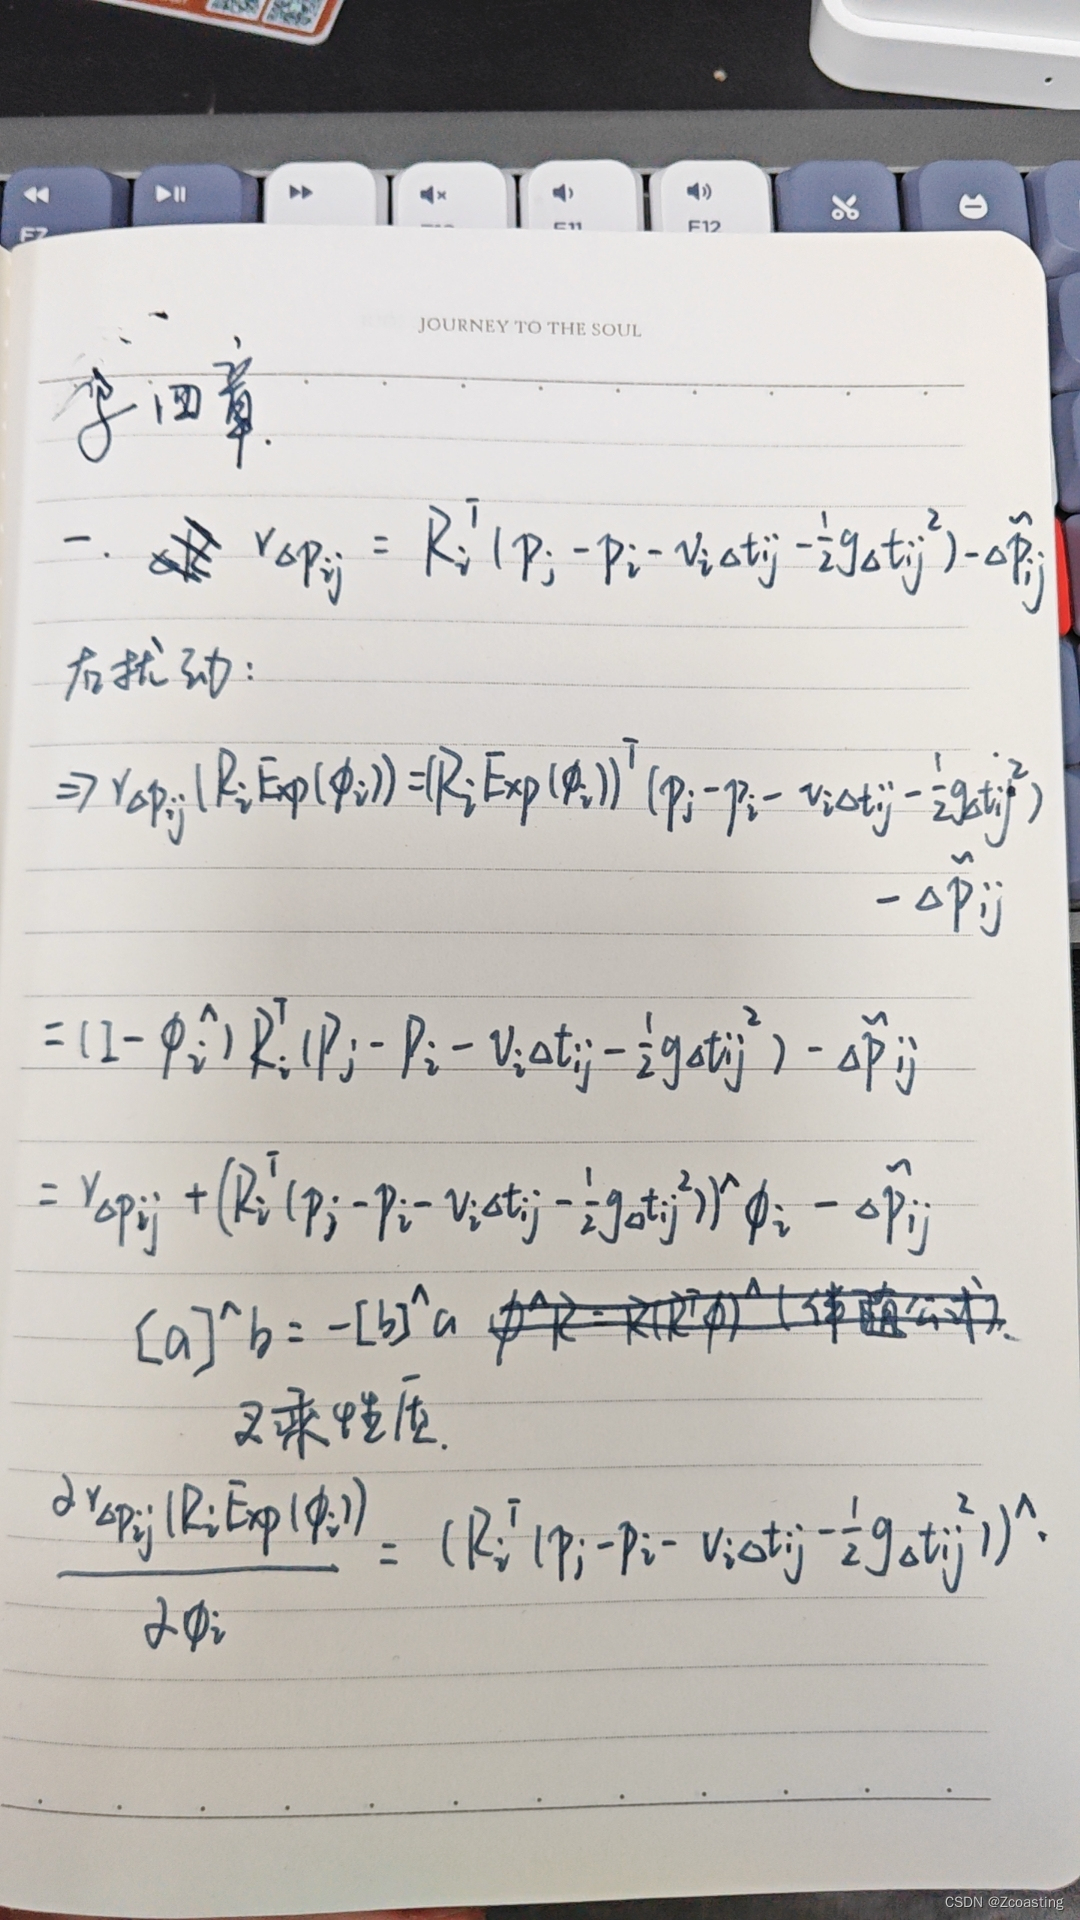 F7
F10
F11
F12
JOURNEY TO THE SOUL
第四章.
一. r_{Δp_{ij}} = R_i^T (p_j - p_i - v_iΔt_{ij} - \frac{1}{2}gΔt_{ij}^2) - Δ\tilde{p}_{ij}
右扰动:
⇒ r_{Δp_{ij}}(R_i Exp(ϕ_i)) = (R_i Exp(ϕ_i))^T (p_j - p_i - v_iΔt_{ij} - \frac{1}{2}gΔt_{ij}^2)
- Δ\tilde{p}_{ij}
= (I - ϕ_i^∧) R_i^T (p_j - p_i - v_iΔt_{ij} - \frac{1}{2}gΔt_{ij}^2) - Δ\tilde{p}_{ij}
= r_{Δp_{ij}} + (R_i^T (p_j - p_i - v_iΔt_{ij} - \frac{1}{2}gΔt_{ij}^2))^∧ ϕ_i - Δ\tilde{p}_{ij}
[a]^∧ b = -[b]^∧ a ϕ^∧R = R(R^Tϕ)^∧ (伴随公式).
叉乘性质.
\frac{∂r_{Δp_{ij}}(R_i Exp(ϕ_i))}{∂ϕ_i} = (R_i^T (p_j - p_i - v_iΔt_{ij} - \frac{1}{2}gΔt_{ij}^2))^∧.
CSDN @Zcoasting